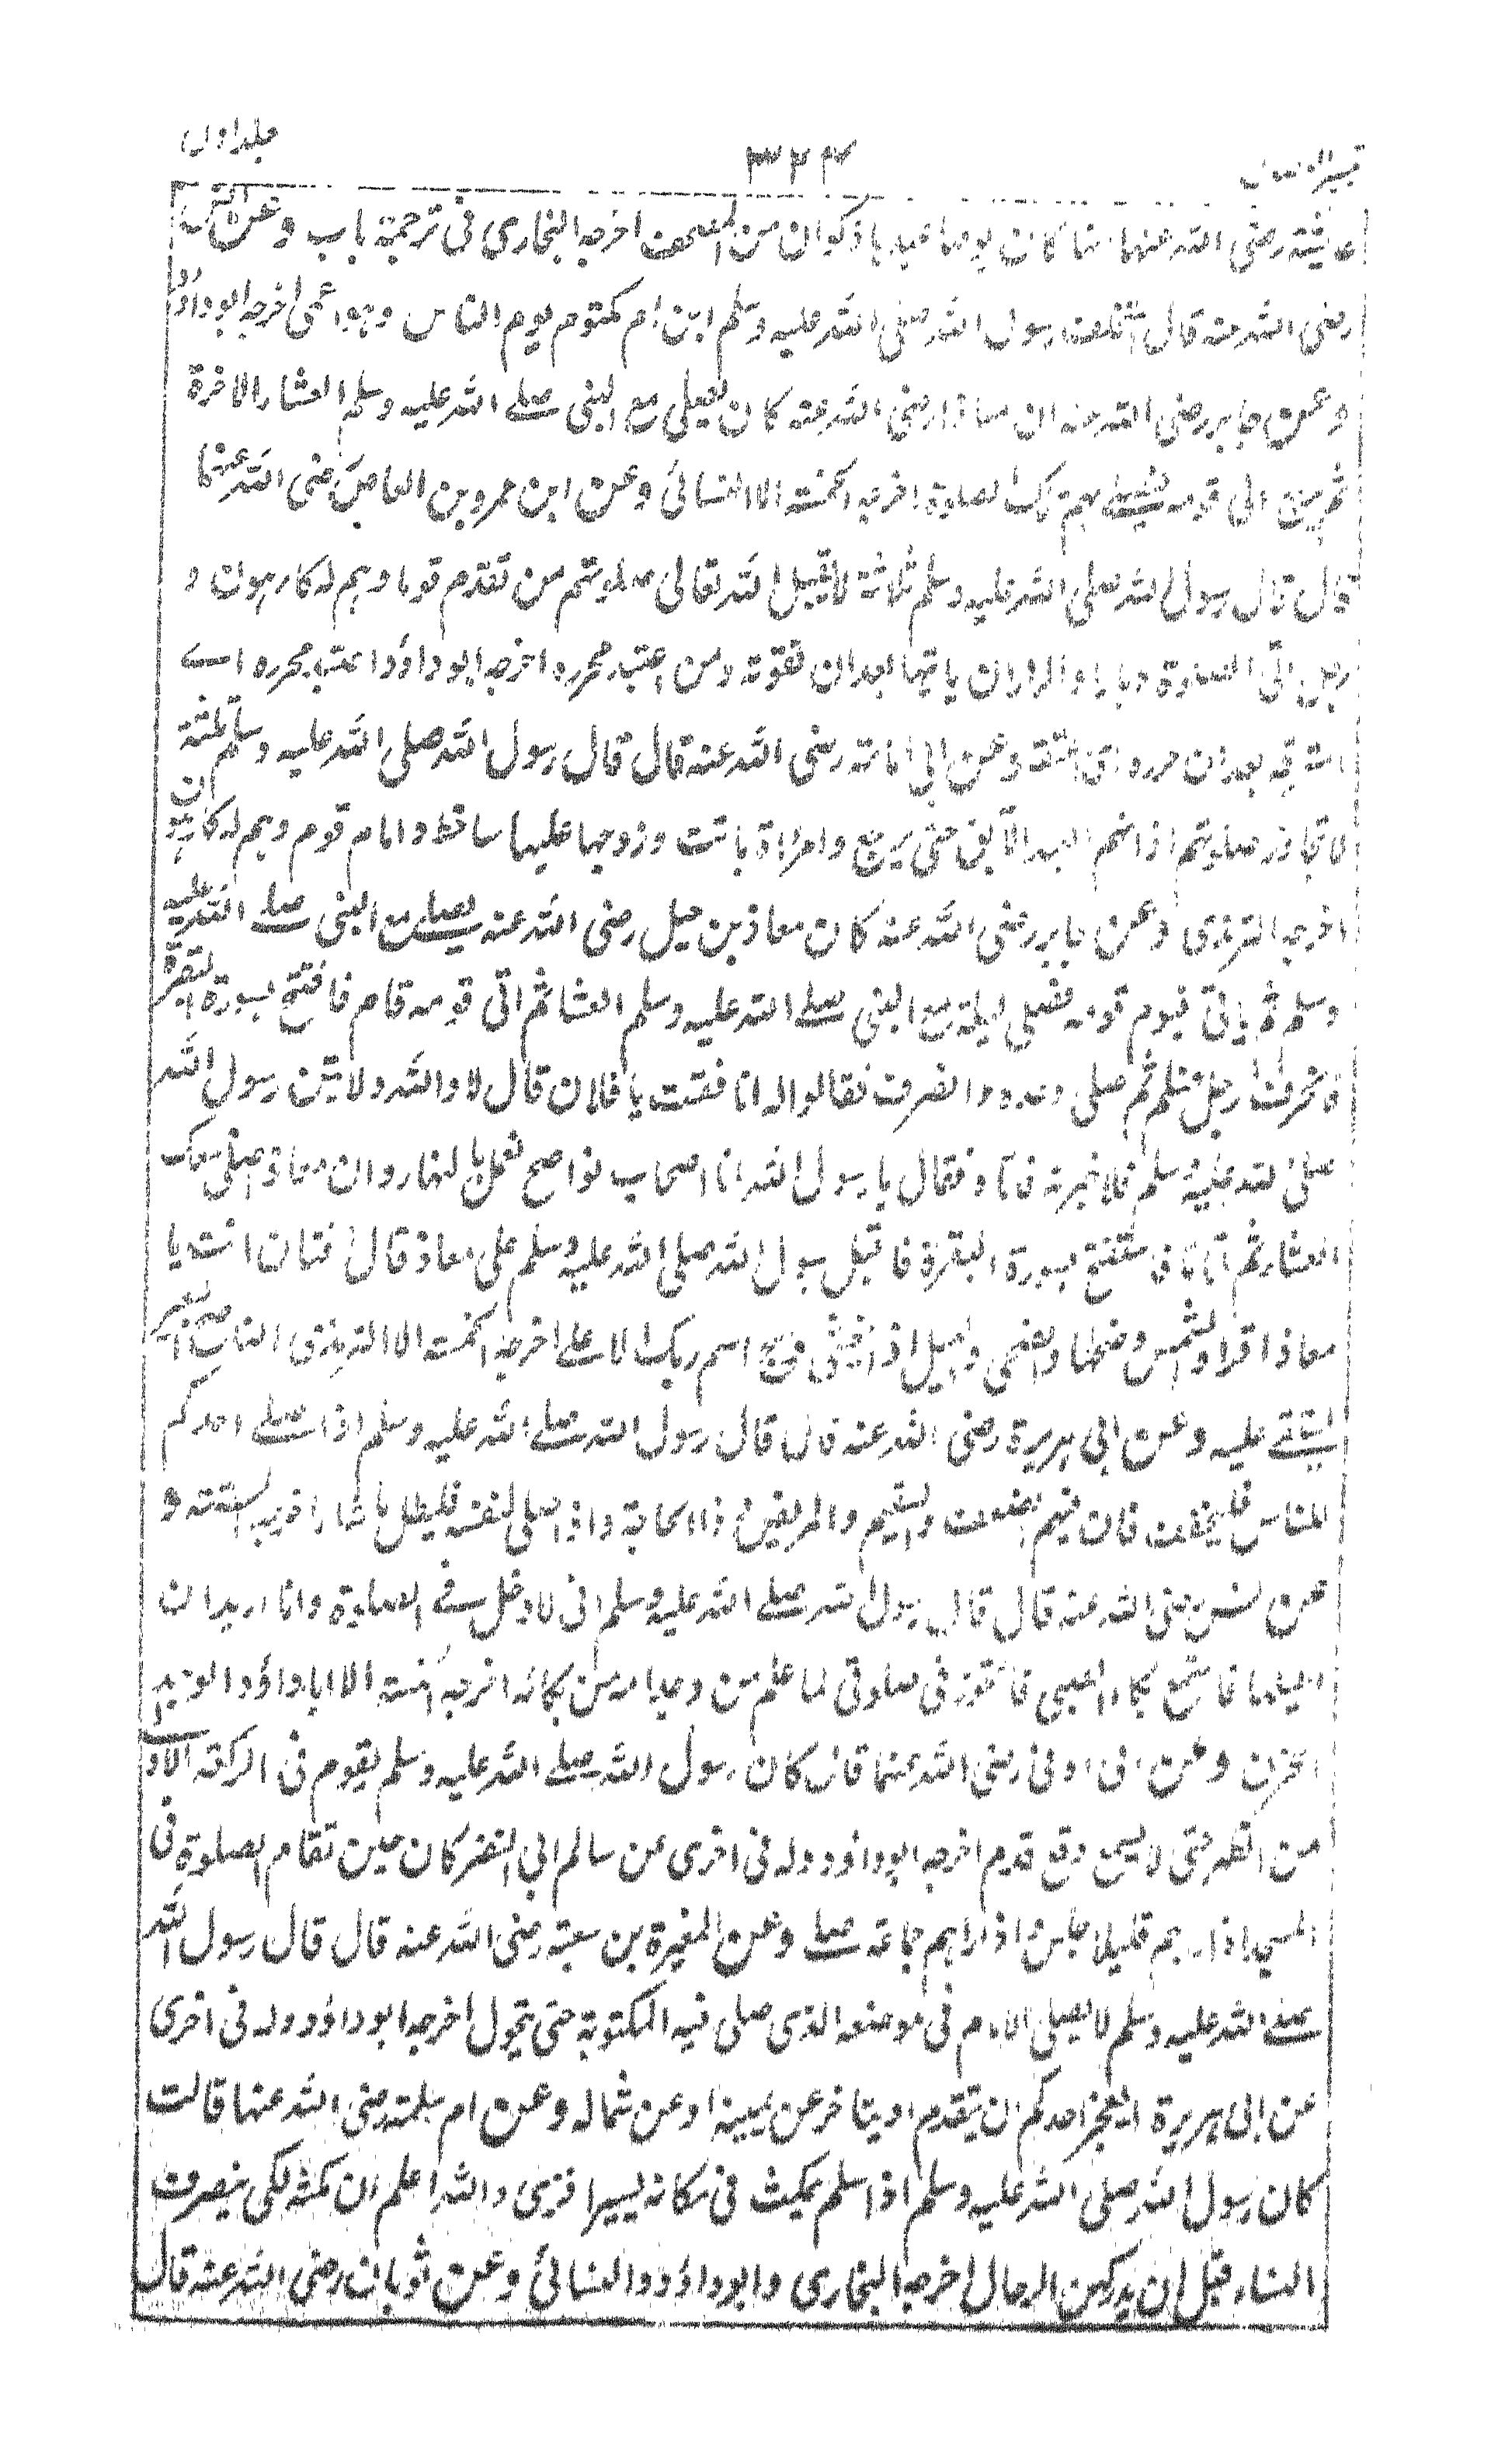 تيسير الوصول ۳۲۴ جلد اول
عائشة رضی الله عنها انها كان يؤمها عبدها ذكوان من المصحف اخرجه البخاری فی ترجمة باب وعن انس
رضی الله عنه قال استخلف رسول الله صلی الله عليه وسلم ابن ام مكتوم يوم الناس وهو اعمی اخرجه ابو داؤد
وعن جابر رضی الله عنه ان معاذا رضی الله عنه كان يصلی مع النبی صلے الله عليه وسلم العشاء الاخرة
ثم يرجع الی قومه فيصلے بهم تلك الصلوة اخرجه الخمسة الا النسائی وعن ابن عمرو بن العاص رضی الله عنهما
قال قال رسول الله صلی الله عليه وسلم ثلاثة لا يقبل الله تعالی صلوتهم من تقدم قوما وهم له كارهون و
رجل اتی الصلوة دبارا والدباران ياتيها بعد ان تفوته ومن اعتبد محرره اخرجه ابو داؤد اعتبد محرره اے
استرقه بعد ان حرره ای اعتقه وعن ابی امامة رضی الله عنه قال قال رسول الله صلی الله عليه وسلم ثلثة
لا تجاوز صلوتهم اذانهم العبد الآبق حتی يرجع وامراة باتت وزوجها عليها ساخط وامام قوم وهم له كارهون
اخرجه الترمذی وعن جابر رضی الله عنه كان معاذ بن جبل رضی الله عنه يصلے مع النبی صلے الله عليه
وسلم ثم ياتی فيؤم قومه فصلی ليلة مع النبی صلے الله عليه وسلم العشا ثم اتی قومه قام فافتتح بسورة البقرة
فانحرف رجل فسلم ثم صلی وحده وانصرف فقالوا له انافقت يا فلان قال لا والله ولاتين رسول الله
صلی الله عليه وسلم فلاخبرنه فاتاه فقال يا رسول الله انا اصحاب نواضح نعمل بالنهار وان معاذ اصلی معك
العشاء ثم اتانا فاستفتح بسورة البقرة فاقبل رسول الله صلی الله عليه وسلم علی معاذ قال فتان انت يا
معاذ اقرا والشمس وضحها والضحی والليل اذا يغشی وسبح اسم ربك الاعلے اخرجه الخمسة الا الترمذی الناضح البعير
يستقے عليه وعن ابی هريرة رضی الله عنه قال قال رسول الله صلے الله عليه وسلم اذا صلے احدكم
للناس فليخفف فان فيهم الضعيف والسقيم والمريض وذا الحاجة واذا صلی لنفسه فليطل ما شاء اخرجه الستة و
عن انس رضی الله عنه قال قال رسول الله صلے الله عليه وسلم انی لادخل فے الصلوة وانا اريد ان
اطيلها فاسمع بكاء الصبی فاتجوز فی صلوتی لما اعلم من وجد امه من بكائه اخرجه الخمسة الا ابا داؤد الوجد
الحزن وعن ابی اوفی رضی الله عنهما قال كان رسول الله صلے الله عليه وسلم يقوم فی الركعة الاولے
من الظهر حتی لا يسمع وقع قدم اخرجه ابو داؤد وله فی اخری عن سالم ابی النضر كان حين تقام الصلوة فی
المسجد اذا راهم قليلا جلس واذا راهم جماعة صلے وعن المغيرة بن شعبة رضی الله عنه قال قال رسول الله
صلے الله عليه وسلم لا يصلی الامام فی موضعه الذی صلی فيه المكتوبة حتی يتحول اخرجه ابو داؤد وله فی اخری
عن ابی هريرة ايعجز احدكم ان يتقدم او يتاخر عن يمينه او عن شماله وعن ام سلمة رضی الله عنها قالت
كان رسول الله صلی الله عليه وسلم اذا سلم يمكث فی مكانه يسيرا فنری والله اعلم ان مكثه لكی ينصرف
النساء قبل ان يدركهن الرجال اخرجه البخاری وابو داؤد والنسائی وعن ثوبان رضی الله عنه قال